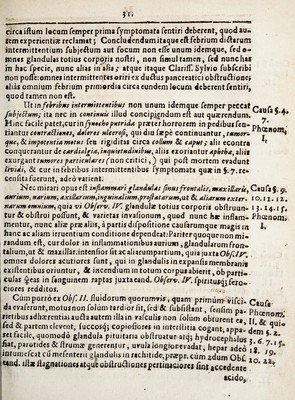 31.
circa istum locum semper prima symptomata sentiri deberent, quod autem experientiæ reclamat; Concludendum itaque est febrium distarum
intermittentium subjectum aut focum non esse unum idemque, sed omnes glandulas totius corporis nostri, non simul tamen, sed nunc has
in hac specie, nunc alias in alia; atque itaque Clariss. Sylvio subscribi
non posse: omnes intermittentes oriri ex ductus pancreatici obstructiones
alias omnium febrium primordia circa eundem locum deberent sentiri,
quod tamen non est.
Ut in febribus intermittentibus non unum idemque semper peccat
subjectum; ita nec in continuis illud concipiendum est aut quærendum.
Hinc facile patet, cur in synocho putrida præter horrorem in pedibus sentiantur contractiones, dolores ulcerosi, qui diu sæpè continuantur, tumorque, & impotentia motus seu rigiditas circa collum & caput; alii contra
conquerantur de cardialgia, inquietudinibus, aliis exoriantur aphthæ, aliis
exurgant tumores particulares (non critici,) qui post mortem evadunt
lividi, & cur in febribus intermittentibus symptomata quæ in §. 7. recensita fuerunt, adeò varient.
Causa §. 4.
7.
Phœnom,
I.
Nec mirari opus est inflammari glandulas sinus frontalis, maxillaris,
aurium, narium, axillarum, inguinalium, prostatarum, ut & aliarum externarum omnium, quia vt Observ. IV. glandulæ totius corporis obstruuntur & obstrui possunt, & varietas invasionum, quod nunc hæ inflammentur, nunc aliæ præ aliis, à partis dispositione causarumque magis in
hanc ac aliam irruentium conditione dependeat: Pariter quoque non mirandum est, cur dolor in inflammationibus aurium, glandularum frontalium, ut & maxillæ intensior sit ac aliarum partium, quia juxta Obs. LIV.
omnes dolores acutiores sunt, qui in glandulis in expansis membranis
existentibus oriuntur, & incendium in totum corpus abierit, ob particulas igneas in sanguinem raptas juxta eand. Observ. IV. spiritusq; ferociores redditos.
Causa §. 9.
10. 11. 12.
13. 14. 15.
Phœnom:
I.
Cùm porrò ex Obs: II. fluidorum quorumvis, quam primùm viscida evaserunt, motus non solùm tardior sit, sed & subsistant, sensim parietibus adhærentia aucta autem illa in vasculis non solùm obturent ea,
sed & partem elevent, succosq; copiosiores in interstitia cogant, apparet facile, quomodò glandula pituitaria obstruatur atq; hydrocephalus
fiat, parotides & strumæ generentur, uvula longior evadat, hepar adeò
intumescat cû mesenterii glandulis in rachitide, præsp. cùm adùm Obs.
eand. istæ stagnationes atque obstructiones pertinaciores sunt accedente
Causa
Phœnom.
II, & quidem §. 2.
3. 6. 7. 15.
18. 19.
20. 22.
acido,